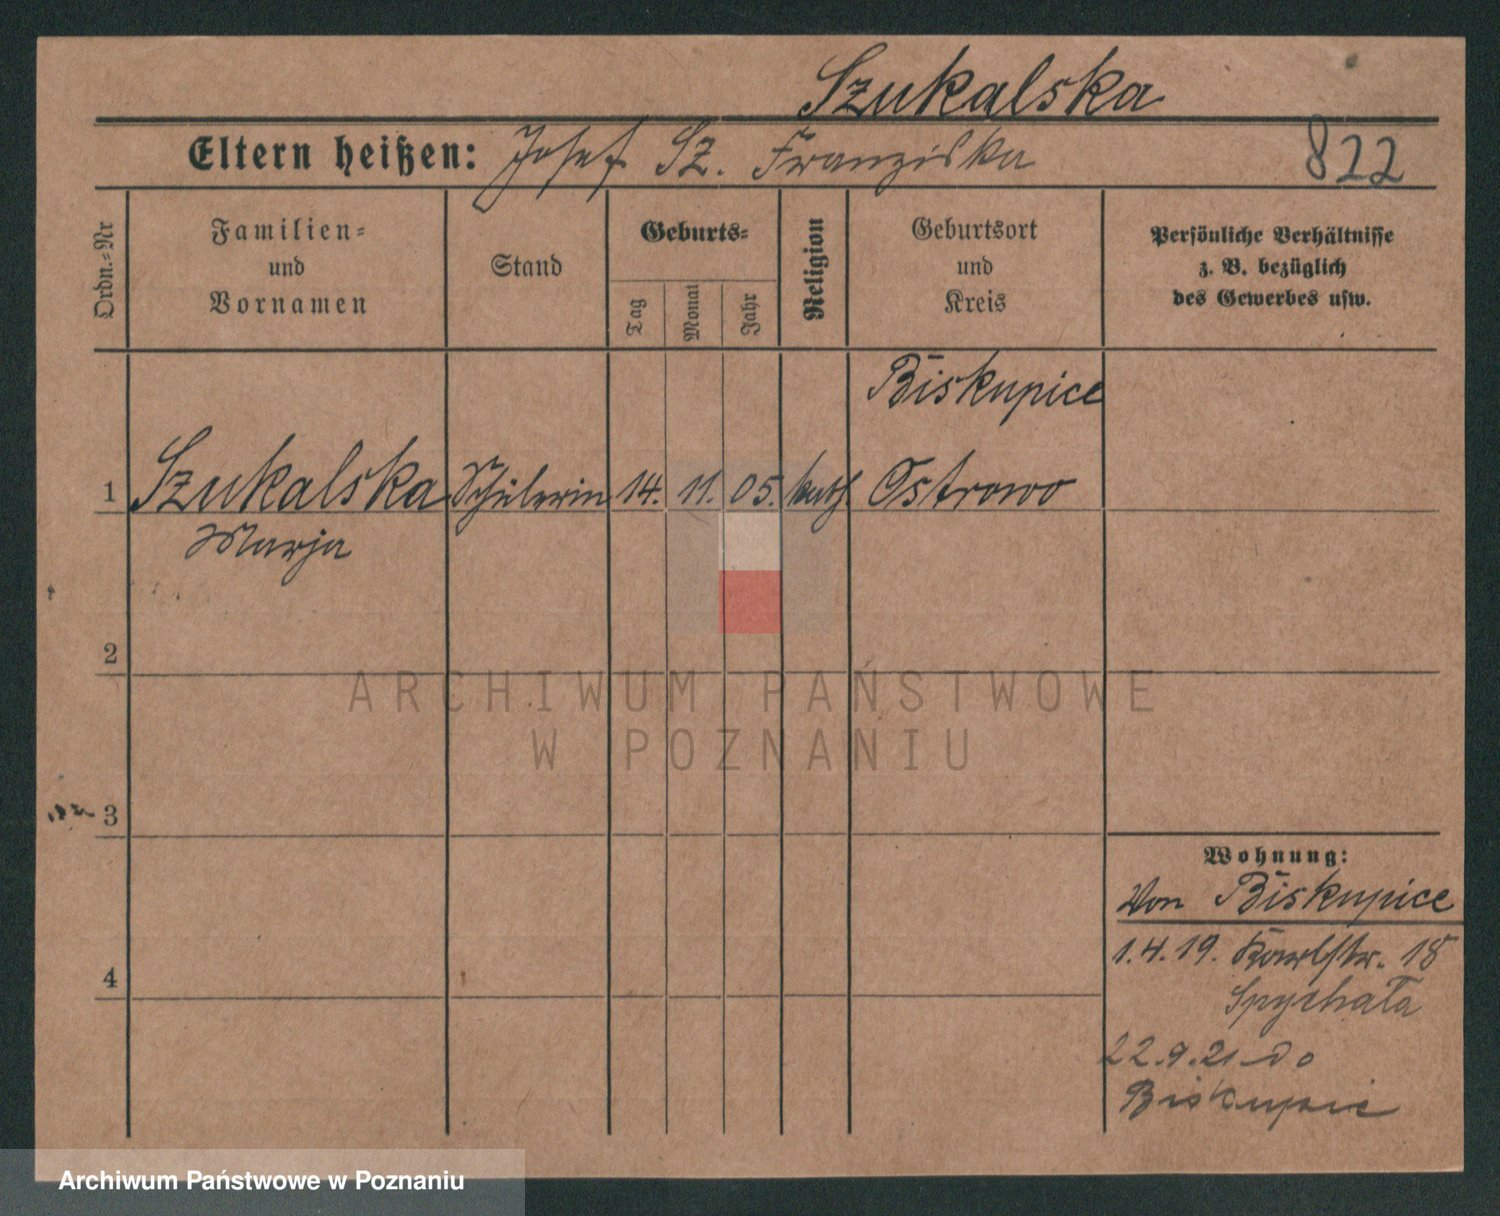 Szukalska
Eltern heißen: Josef Sz. Franziska
822
Ordn.-Nr
Familien-
und
Vornamen
Stand
Geburts-
Tag
Monat
Jahr
Religion
Geburtsort
und
Kreis
Persönliche Verhältnisse
z. B. bezüglich
des Gewerbes usw.
Biskupice
1 Szukalska Schülerin 14. 11. 05. kath. Ostrowo
Marja
2
ARCHIWUM PAŃSTWOWE
W POZNANIU
3
Wohnung:
Von Biskupice
1.4.19. Karlstr. 18
Spychała
4
22.9.21 do
Biskupic
Archiwum Państwowe w Poznaniu